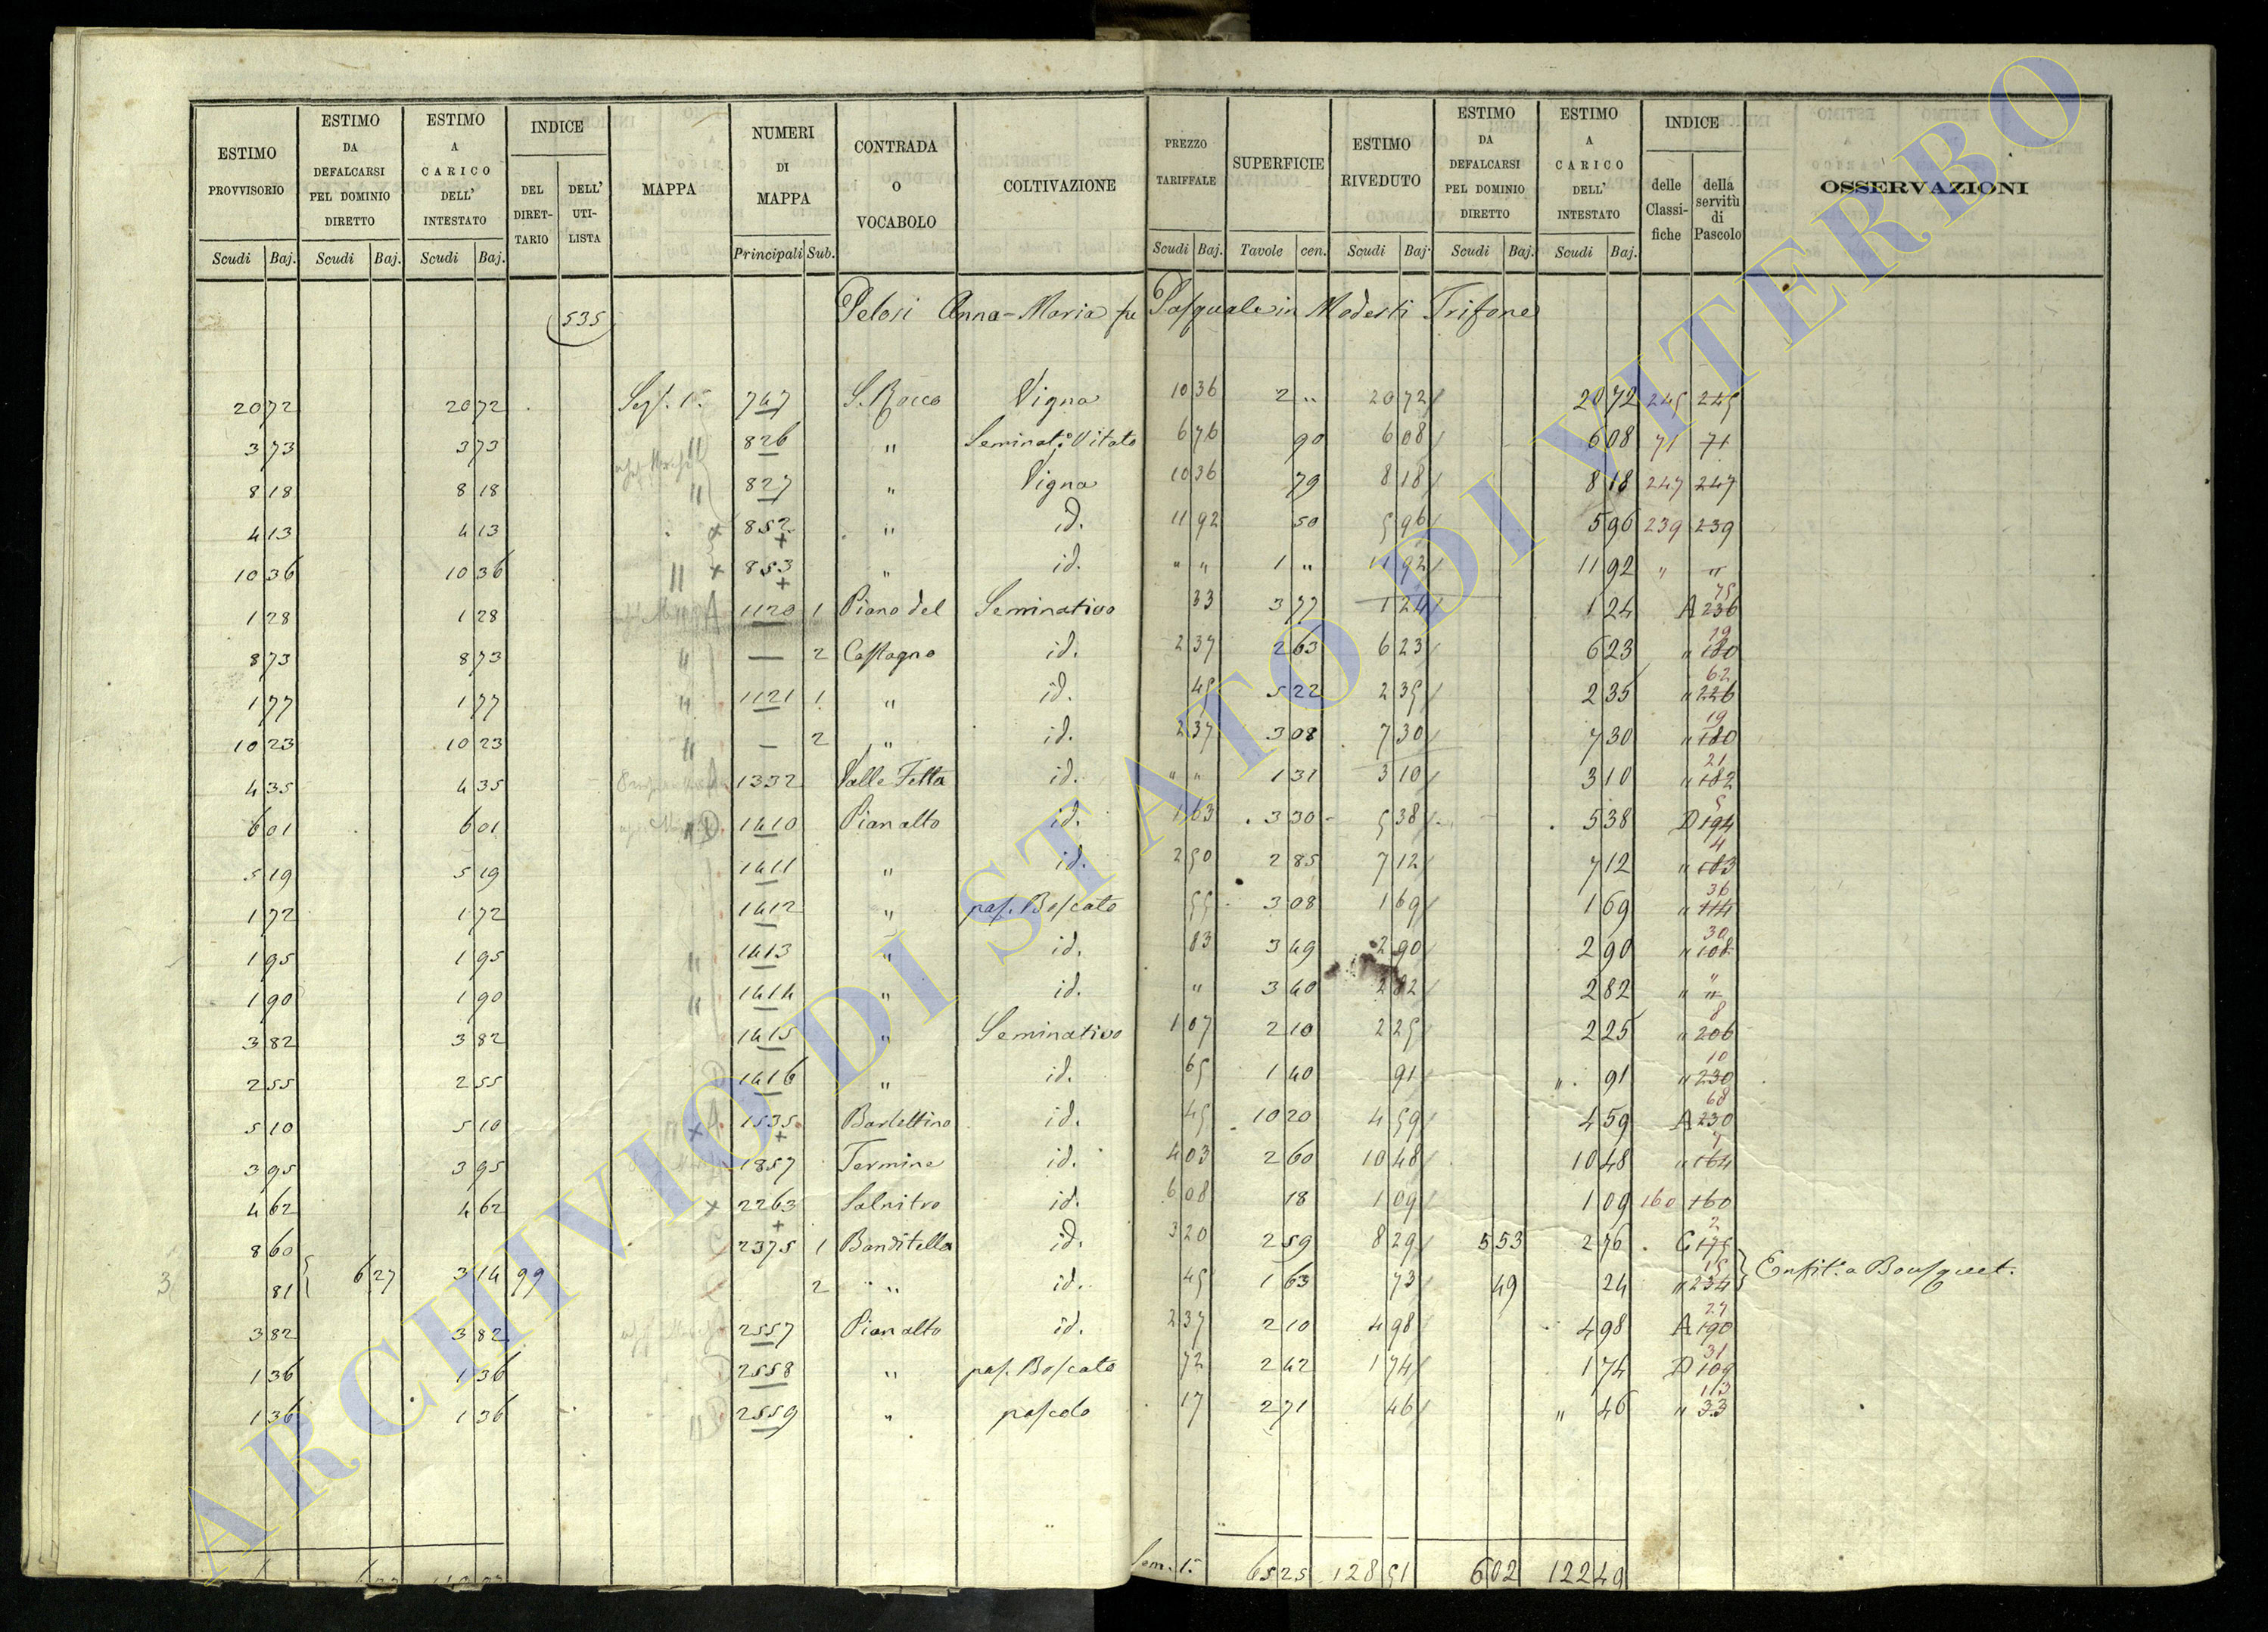 ESTIMO PROVVISORIO | ESTIMO DA DEFALCARSI PEL DOMINIO DIRETTO | ESTIMO A CARICO DELL' INTESTATO | INDICE | MAPPA | NUMERI DI MAPPA | CONTRADA O VOCABOLO | COLTIVAZIONE | PREZZO TARIFFALE | SUPERFICIE | ESTIMO RIVEDUTO | ESTIMO DA DEFALCARSI PEL DOMINIO DIRETTO | ESTIMO A CARICO DELL' INTESTATO | INDICE | OSSERVAZIONI
DEL DIRETTARIO | DELL' UTILISTA | delle Classifiche | della servitù di Pascolo
Scudi | Baj. | Scudi | Baj. | Scudi | Baj. | Principali | Sub. | Scudi | Baj. | Tavole | cen. | Scudi | Baj. | Scudi | Baj. | Scudi | Baj.
535 Pelosi Anna-Maria fu Pasquale in Modesti Trifone
20 72 | 20 72 | Sez. 1ª | 747 | S. Rocco | Vigna | 10 36 | 2 " | 20 72 | 20 72 | 245 | 245
3 73 | 3 73 | " | 826 | " | Seminat.o Vitato | 6 76 | 90 | 6 08 | 6 08 | 71 | 71
8 18 | 8 18 | " | 827 | " | Vigna | 10 36 | 79 | 8 18 | 8 18 | 247 | 247
4 13 | 4 13 | x | 852 | " | id. | 11 92 | 50 | 5 96 | 5 96 | 239 | 239
10 36 | 10 36 | " x | 853 | " | id. | " " | 1 " | 11 92 | 11 92 | " | "
1 28 | 1 28 | A | 1120 | 1 | Piano del | Seminativo | 33 | 3 77 | 1 24 | 1 24 | A 236 75
8 73 | 8 73 | " | — | 2 | Castagno | id. | 2 37 | 2 63 | 6 23 | 6 23 | " 180 19
1 77 | 1 77 | " | 1121 | 1 | " | id. | 45 | 5 22 | 2 35 | 2 35 | " 226 62
10 23 | 10 23 | " | — | 2 | " | id. | 2 37 | 3 08 | 7 30 | 7 30 | " 180 19
4 35 | 4 35 | 1332 | Valle Fetta | id. | " " | 1 31 | 3 10 | 3 10 | " 182 21
6 01 | 6 01 | " D | 1410 | Pian alto | id. | 1 63 | 3 30 | 5 38 | 5 38 | D 194 5
5 19 | 5 19 | 1411 | " | id. | 2 50 | 2 85 | 7 12 | 7 12 | " 183 4
1 72 | 1 72 | 1412 | " | pas. Boscato | 55 | 3 08 | 1 69 | 1 69 | " 114 36
1 95 | 1 95 | " | 1413 | " | id. | 83 | 3 49 | 2 90 | 2 90 | " 108 30
1 90 | 1 90 | " | 1414 | " | id. | " | 3 40 | 2 82 | 2 82 | " "
3 82 | 3 82 | 1415 | " | Seminativo | 1 07 | 2 10 | 2 25 | 2 25 | " 206 8
2 55 | 2 55 | 1416 | " | id. | 65 | 1 40 | 91 | " 91 | " 230 10
5 10 | 5 10 | x A | 1535 | Barlettino | id. | 45 | 10 20 | 4 59 | 4 59 | A 230 68
3 95 | 3 95 | 1857 | Termine | id. | 4 03 | 2 60 | 10 48 | 10 48 | " 164 7
4 62 | 4 62 | x | 2263 | Salnitro | id. | 6 08 | 18 | 1 09 | 1 09 | 160 | 160
8 60 | 2375 | 1 | Banditella | id. | 3 20 | 2 59 | 8 29 | 5 53 | 2 76 | C 175 2
81 | 6 27 | 3 14 | 99 | 2 | " | id. | 45 | 1 63 | 73 | 49 | 24 | " 234 15 | Enfit. a Bousquet.
3 82 | 3 82 | 2557 | Pian alto | id. | 2 37 | 2 10 | 4 98 | 4 98 | A 190 27
1 36 | 1 36 | 2558 | " | pas. Boscato | 72 | 2 42 | 1 74 | 1 74 | D 109 31
1 36 | 1 36 | " | 2559 | " | pascolo | 17 | 2 71 | 46 | " 46 | " 33 113
Som. 1ª | 65 25 | 128 51 | 6 02 | 122 49
ARCHIVIO DI STATO DI VITERBO